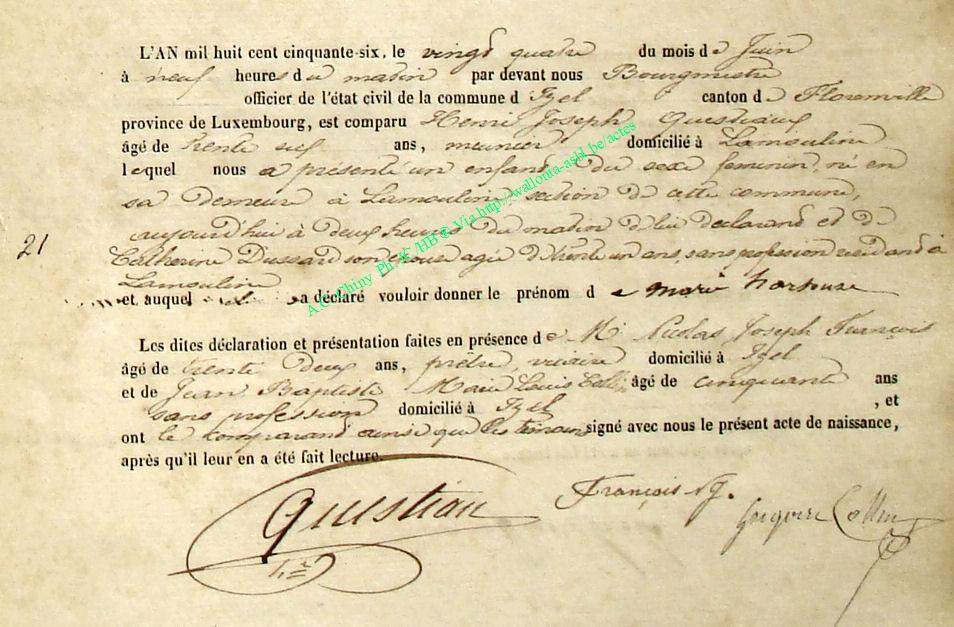 L'AN mil huit cent cinquante-six, le vingt quatre du mois de Juin
à neuf heures du matin par devant nous Bourgmestre
officier de l'état civil de la commune d Izel canton de Florenville
province de Luxembourg, est comparu Henri Joseph Questiaux
âgé de trente six ans, meunier domicilié à Lamouline
lequel nous a présenté un enfant du sexe feminin, né en
sa demeure à Lamouline section de cette commune,
aujourd'hui à deux heures du matin de lui declarant et de
21
Catherine Dussard son epouse agée de trente un ans, sans profession residant à
Lamouline
et auquel a déclaré vouloir donner le prénom de Marie
Les dites déclaration et présentation faites en présence de Mr Nicolas Joseph François
âgé de trente deux ans, prêtre, vicaire domicilié à Izel
et de Jean Baptiste Marie Louis âgé de cinquante ans
sans profession domicilié à Izel , et
ont le comparant ainsi que les temoins signé avec nous le présent acte de naissance,
après qu'il leur en a été fait lecture.
Questiau
François NJ.
Gregoire Collin
A.C. Chiny Ph. JC/HB © Via http://wallonia-asbl.be/actes